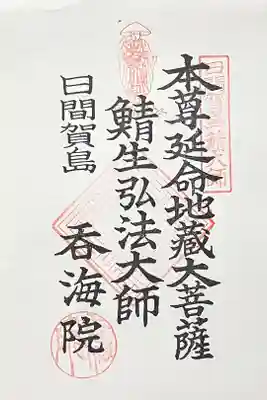 本尊延命地藏大菩薩
鯖生弘法大師
日間賀島
呑海院